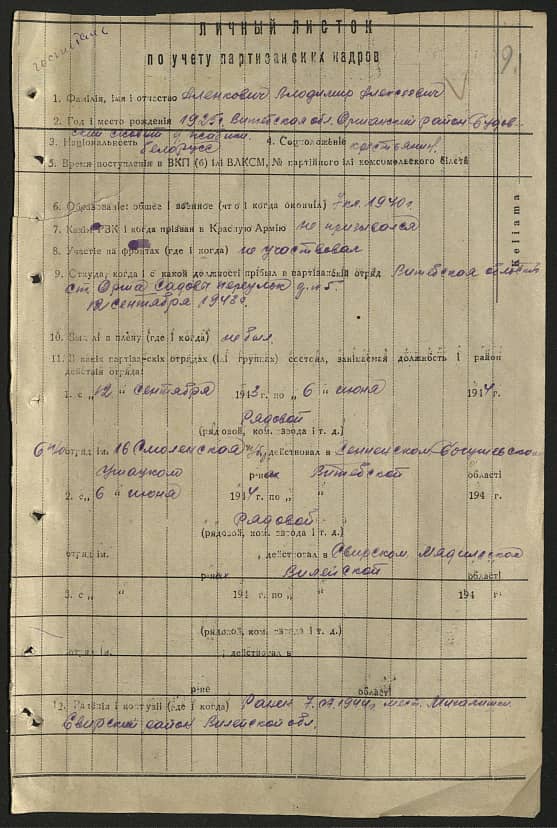 госпиталь
ЛИЧНЫЙ ЛИСТОК
по учету партизанских кадров
9.
1. Фамілія, імя і отчество Аленкович Владимир Алексеевич
2. Год і место рождения 1925 г. Витебская обл. Оршанский район Будов-
ский с/совет д.
3. Національность белорусс 4. Соцположение крестьянин
5. Время поступления в ВКП (б) ілі ВЛКСМ, № партійного ілі комсомольского білета
6. Образование: общее і военное (что і когда окончіл) 7 кл. 1940 г
7. Какім РВК і когда прізван в Красную Армію не призывался
8. Участіе на фронтах (где і когда) не участвовал
9. Откуда, когда і с какой должності прібыл в партізанскій отряд Витебская область
ст. Орша Садовы переулок д. № 5
12 сентября 1943 г.
10. Был лі в плену (где і когда) не был.
11. В какіх партізанскіх отрядах (ілі группах) состоял, занімаемая должность і район
действія отряда:
1. с „12 " сентября 1943 г. по „ 6 " июня 1944 г.
Рядовой
(рядовой, ком. взвода і т. д.)
отряд ім. 16 Смоленская действовал в Сенненском Богушевском
Ушацком р-нах Витебской області
2. с „6 " июня 1944 г. по „ " 194 г.
Рядовой
(рядовой, ком. взвода і т. д.)
отряд ім. , действовал в Свирском, Мядилском
р-нах Вилейской області
3. с „ " 194 г. по „ " 194 г.
(рядовой, ком. взвода і т. д.)
отряд ім. , действовал в
р-не області
12. Раненія і контузіі (где і когда) Ранен 7.07.1944 г. мест. Михалишки
Свирский район Вилейской обл.
Keliama